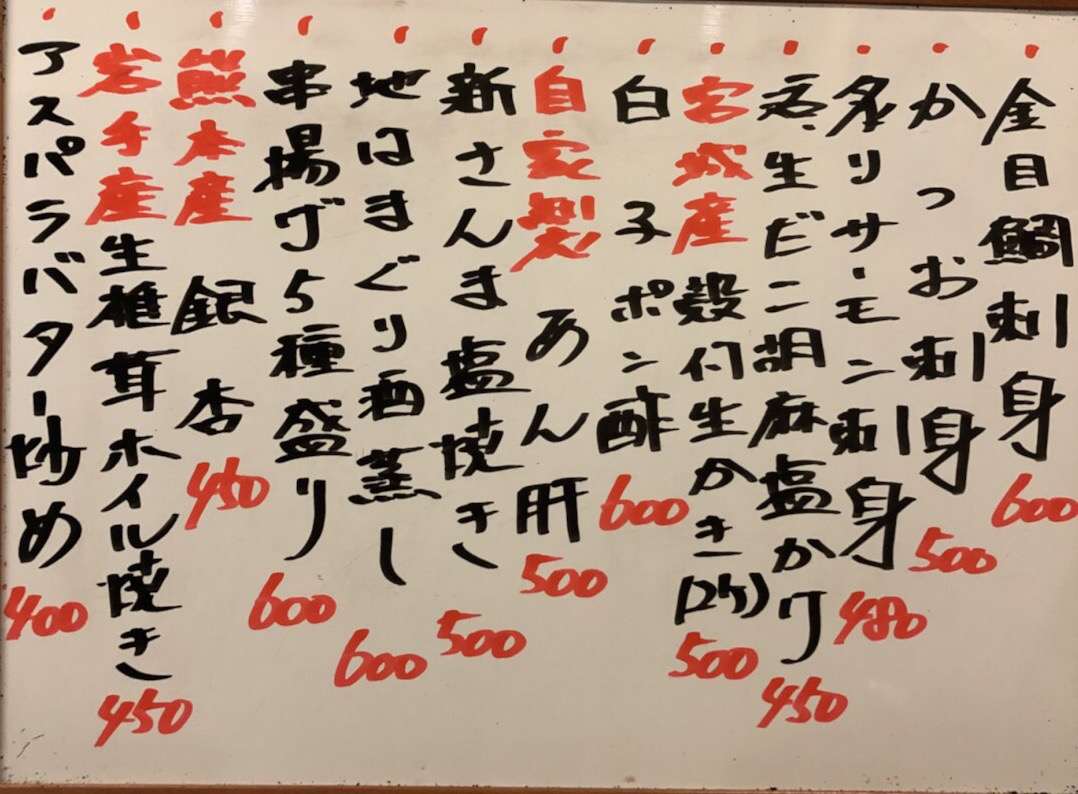 金目鯛刺身 600
かつお刺身 500
炙りサーモン刺身 480
生だこ胡麻塩かけ 450
宮城産殻付生かき(2ケ) 500
白子ポン酢 600
自家製 あん肝 500
新さんま塩焼き 500
地はまぐり酒蒸し 600
串揚げ5種盛り 600
熊本産 銀杏 450
岩手産生椎茸ホイル焼き 450
アスパラバター炒め 400